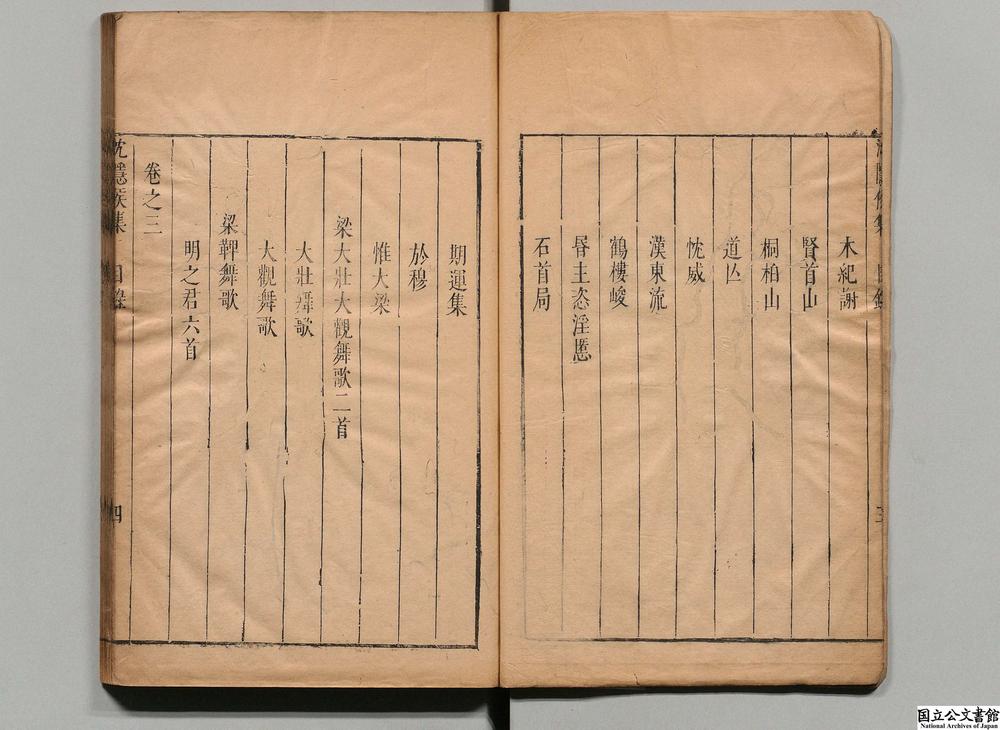 木紀謝
賢首山
桐柏山
道亾
忱威
漢東流
鶴樓峻
昬主恣淫慝
石首局
期運集
於穆
惟大梁
梁大壯大觀舞歌二首
大壯舞歌
大觀舞歌
梁鞞舞歌
明之君六首
卷之三
沈隱矦集 目錄 四
国立公文書館
National Archives of Japan